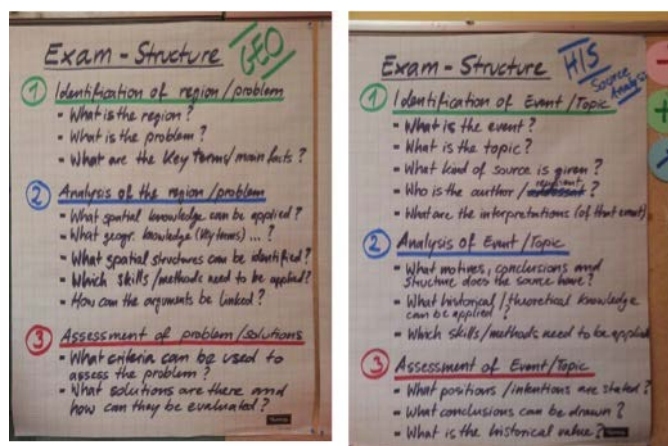 Exam-Structure GEO
1 Identification of region/problem
- What is the region?
- What is the problem?
- What are the key terms/main facts?
2 Analysis of the region/problem
- What spatial knowledge can be applied?
- What geogr. knowledge (key terms) ...?
- What spatial structures can be identified?
- Which skills/methods need to be applied?
- How can the arguments be linked?
3 Assessment of problem/solutions
- What criteria can be used to
assess the problem?
- What solutions are there and
how can they be evaluated?
Exam-Structure HIS
Source
Analysis
1 Identification of Event/Topic
- What is the event?
- What is the topic?
- What kind of source is given?
- Who is the author / ?
- What are the interpretations (of that event)
2 Analysis of Event/Topic
- What motives, conclusions and
structure does the source have?
- What historical/theoretical knowledge
can be applied?
- Which skills/methods need to be applied
3 Assessment of Event/Topic
- What positions/intentions are stated?
- What conclusions can be drawn?
- What is the historical value?